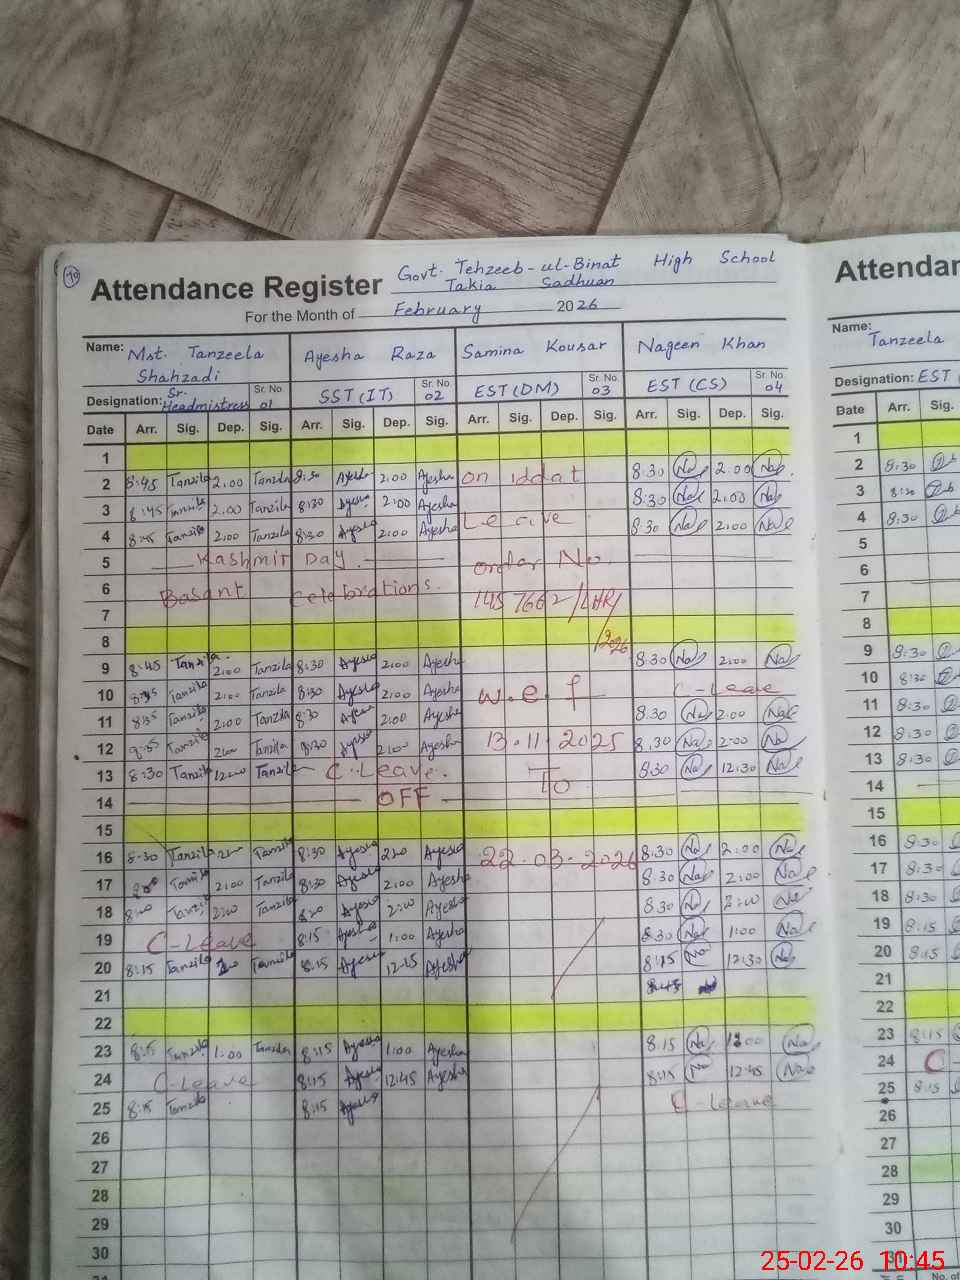 70
Attendance Register Govt. Tehzeeb-ul-Binat High School
Takia Sadhuan
For the Month of February 2026
Name: Mst. Tanzeela Shahzadi Ayesha Raza Samina Kousar Nageen Khan
Designation: Sr. Headmistress Sr. No. 01 SST (IT) Sr. No. 02 EST (DM) Sr. No. 03 EST (CS) Sr. No. 04
Date Arr. Sig. Dep. Sig. Arr. Sig. Dep. Sig. Arr. Sig. Dep. Sig. Arr. Sig. Dep. Sig.
1
2 8:45 Tanzila 2:00 Tanzila 8:30 Ayesha 2:00 Ayesha on iddat 8:30 2:00
3 8:45 Tanzila 2:00 Tanzila 8:30 Ayesha 2:00 Ayesha 8:30 2:00
4 8:45 Tanzila 2:00 Tanzila 8:30 Ayesha 2:00 Ayesha Leave 8:30 2:00
5 Kashmir Day. order No.
6 Basant Celebrations. /LHR/
7
8 /2026
9 8:45 Tanzila 2:00 Tanzila 8:30 Ayesha 2:00 Ayesha 8:30 2:00
10 Tanzila 2:00 Tanzila 8:30 Ayesha 2:00 Ayesha w.e.f C-Leave
11 8:35 Tanzila 2:00 Tanzila 8:30 Ayesha 2:00 Ayesha 8:30 2:00
12 Tanzila 2:00 Tanzila 8:30 Ayesha 2:00 Ayesha 13.11.2025 8:30 2:00
13 8:30 Tanzila 12:00 Tanzila C-Leave. To 8:30 12:30
14 OFF
15
16 8:30 Tanzila Tanzila 8:30 Ayesha Ayesha 22.03.2026 8:30 2:00
17 Tanzila 2:00 Tanzila 8:30 Ayesha 2:00 Ayesha 8:30 2:00
18 Tanzila 2:00 Tanzila Ayesha 2:00 Ayesha 8:30 2:00
19 C-Leave 8:15 Ayesha 1:00 Ayesha 8:30 1:00
20 8:15 Tanzila Tanzila 8:15 Ayesha 12:15 Ayesha 8:15 12:30
21 8:45
22
23 8:15 Tanzila 1:00 Tanzila 8:15 Ayesha 1:00 Ayesha 8:15
24 C-Leave 8:15 Ayesha 12:45 Ayesha 8:15 12:45
25 8:15 Tanzila 8:15 Ayesha C-Leave
26
27
28
29
30
31
Attendan
Name: Tanzeela
Designation: EST
Date Arr. Sig.
1
2 8:30
3 8:30
4 8:30
5
6
7
8
9 8:30
10 8:30
11 8:30
12 8:30
13 8:30
14
15
16 8:30
17 8:30
18 8:30
19 8:15
20 8:15
21
22
23 8:15
24 C
25 8:15
26
27
28
29
30
31
No. of
25-02-26 10:45